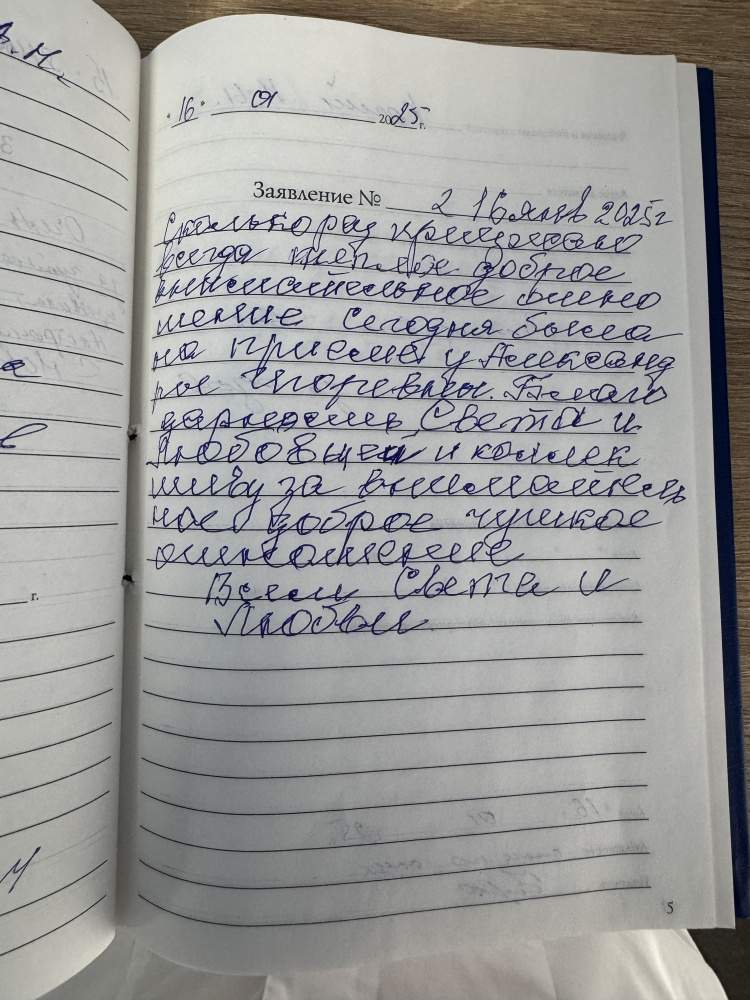 "16" 01 2025 г.
Заявление № 2 16 янв 2025г
Сколько раз прихожаю
всегда теплое доброе
внимательное отно
шение Сегодня была
на приеме у Александ
ры Игоревны. Благо
дарность, Света и
Любови ей и коллек
тиву за вниматель
ное доброе чуткое
отношение
Всем Света и
Любви
г.
5